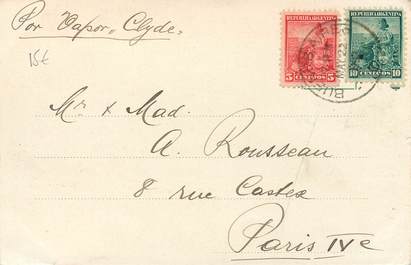 Por Vapor, Clyde.
15€
REPUBLICA ARGENTINA
5 CENTAVOS 5
REPUBLICA ARGENTINA
10 CENTAVOS 10
Mr & Mad.
A. Rousseau
8 rue Castex
Paris IVe